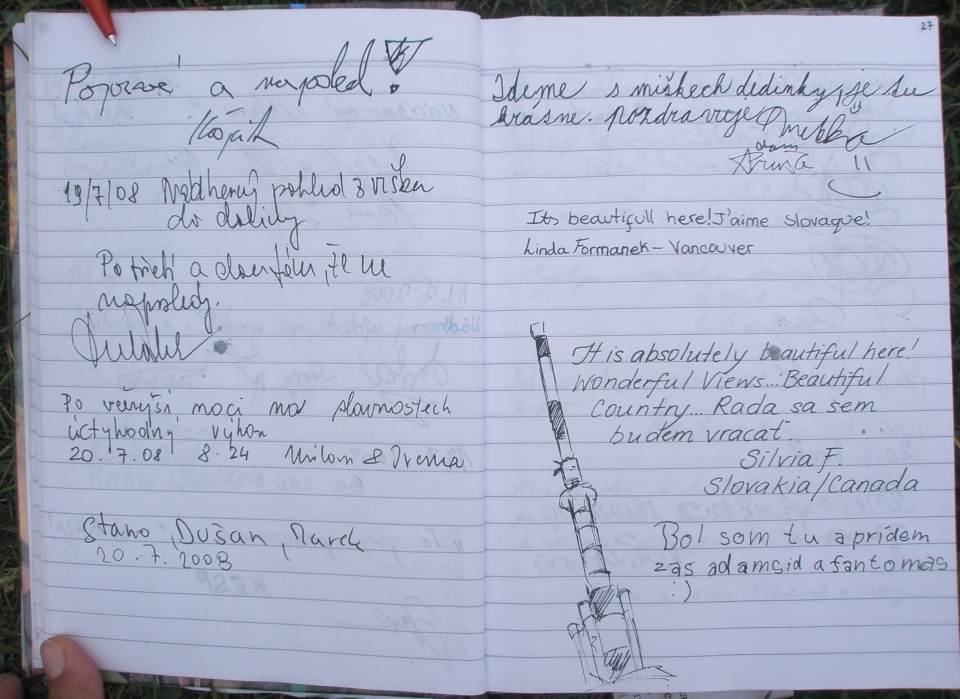 a naposled!
19/7/08 Nádherný pohled z vršku
do doliny
Po třetí a doufám, že ne
naposledy.
Po včerejší noci na slavnostech
úctyhodný výkon
20.7.08 8.24 Milan & Irena
Stano, Dušan, Marek
20.7.2008
27
Ideme s miškech dedinky, je tu
krásne. pozdravuje
Its beautifull here! J'aime Slovaque!
Linda Formanek - Vancouver
It is absolutely beautiful here!
Wonderful Views... Beautiful
Country... Rada sa sem
budem vracať.
Silvia F.
Slovakia/Canada
Bol som tu a prídem
zas adamsid a fantomas
:)